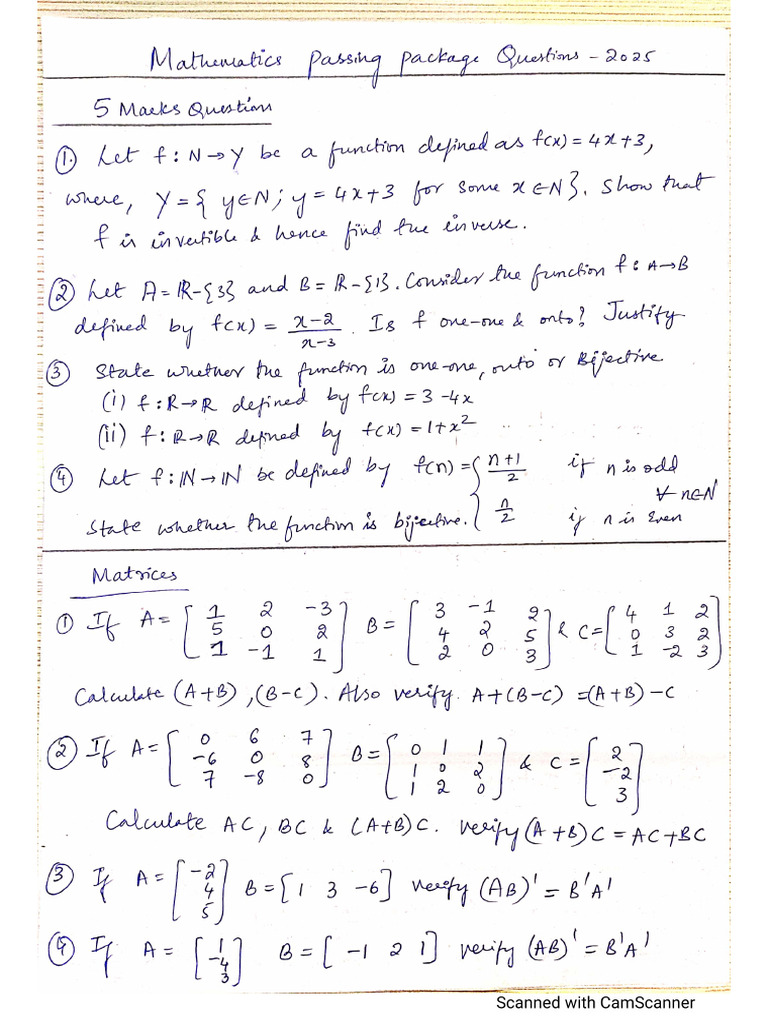 Mathematics Passing Package Questions - 2025
5 Marks Question
1. Let f : N → Y be a function defined as f(x) = 4x+3,
where, Y = { y∈N ; y = 4x+3 for some x∈N}. Show that
f is invertible & hence find the inverse.
2 Let A = R-{3} and B = R-{1}. Consider the function f : A→B
defined by f(x) = (x-2)/(x-3). Is f one-one & onto? Justify
3 State whether the function is one-one, onto or Bijective
(i) f : R→R defined by f(x) = 3-4x
(ii) f : R→R defined by f(x) = 1+x²
4 Let f : N→N be defined by f(n) = { (n+1)/2 if n is odd
n/2 if n is Even ∀ n∈N
State whether the function is bijective.
Matrices
1 If A = [1 2 -3; 5 0 2; 1 -1 1] B = [3 -1 2; 4 2 5; 2 0 3] & C = [4 1 2; 0 3 2; 1 -2 3]
Calculate (A+B), (B-C). Also verify A+(B-C) = (A+B)-C
2 If A = [0 6 7; -6 0 8; 7 -8 0] B = [0 1 1; 1 0 2; 1 2 0] & C = [2; -2; 3]
Calculate AC, BC & (A+B)C. verify (A+B)C = AC+BC
3 If A = [-2; 4; 5] B = [1 3 -6] verify (AB)' = B'A'
4 If A = [1; -4; 3] B = [-1 2 1] verify (AB)' = B'A'
Scanned with CamScanner